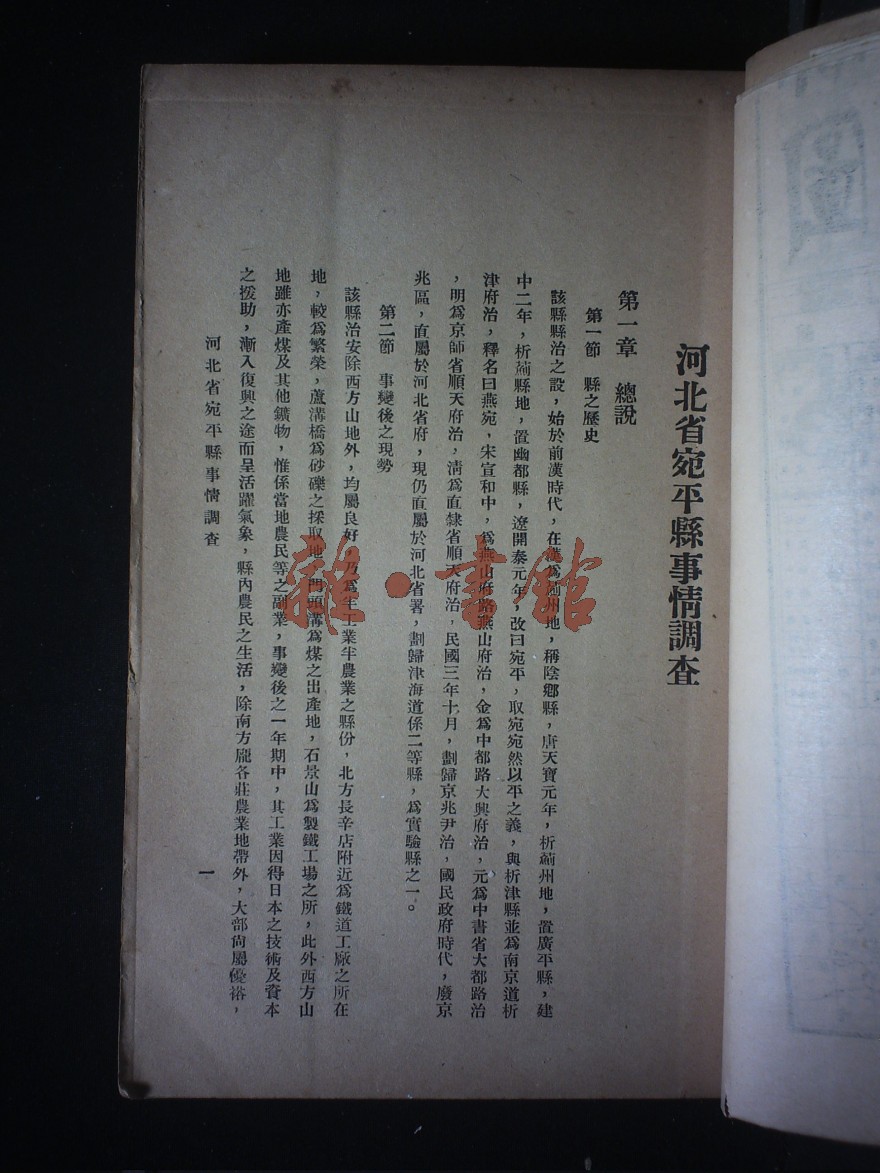 河北省宛平縣事情調查
第一章　總說
第一節　縣之歷史
該縣縣治之設，始於前漢時代，在漢爲薊州地，稱陰鄉縣，唐天寶元年，析薊州地，置廣平縣，建
中二年，析薊縣地，置幽都縣，遼開泰元年，改曰宛平，取宛宛然以平之義，與析津縣並爲南京道析
津府治，釋名曰燕宛，宋宣和中，爲燕山府路燕山府治，金爲中都路大興府治，元爲中書省大都路治
，明爲京師省順天府治，清爲直隸省順天府治，民國三年十月，劃歸京兆尹治，國民政府時代，廢京
兆區，直屬於河北省府，現仍直屬於河北省署，劃歸津海道係二等縣，爲實驗縣之一。
第二節　事變後之現勢
該縣治安除西方山地外，均屬良好，乃爲半工業半農業之縣份，北方長辛店附近爲鐵道工廠之所在
地，較爲繁榮，蘆溝橋爲砂礫之採取地，門頭溝爲煤之出產地，石景山爲製鐵工場之所，此外西方山
地雖亦產煤及其他鑛物，惟係當地農民等之副業，事變後之一年期中，其工業因得日本之技術及資本
之援助，漸入復興之途而呈活躍氣象，縣內農民之生活，除南方龐各莊農業地帶外，大部尚屬優裕，
河北省宛平縣事情調查
一
雜·書館
圖